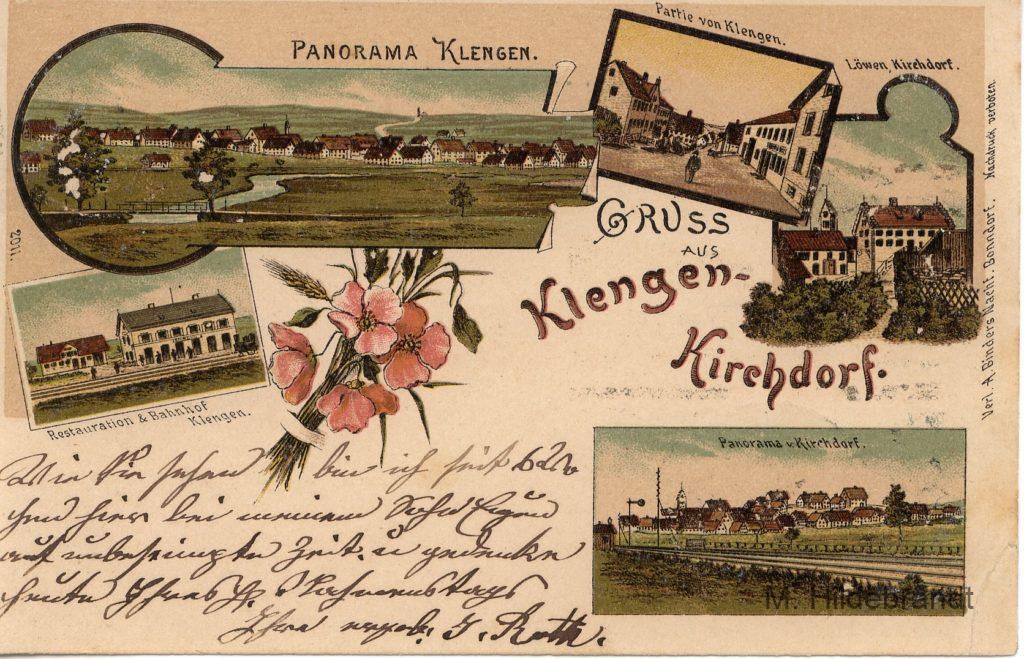 PANORAMA KLENGEN.
Partie von Klengen.
Löwen, Kirchdorf.
GRUSS
AUS
Klengen-
Kirchdorf.
2011.
Restauration & Bahnhof
Klengen.
Panorama v. Kirchdorf.
Verl. A. Binders Nachf. Bonndorf. Nachdruck verboten.
Wie Sie sehen bin ich seit
hier bei meinem Sohn Eugen
auf unbestimmte Zeit. u gedenke
heute Ihres Namenstags
Ihre J. Roth.
M. Hildebrandt